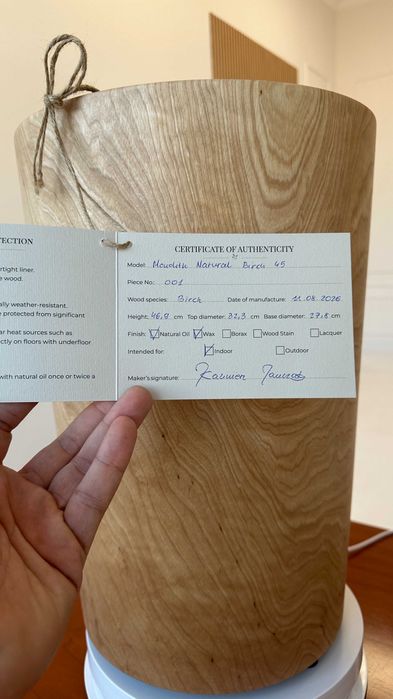 TECTION
rtight liner.
e wood.
ally weather-resistant.
e protected from significant
ar heat sources such as
ctly on floors with underfloor
with natural oil once or twice a
CERTIFICATE OF AUTHENTICITY
Model: Monolith Natural Birch 45
Piece No.: 001
Wood species: Birch Date of manufacture: 11.08.2026
Height: 46,9 cm Top diameter: 32,3 cm Base diameter: 27,8 cm
Finish: Natural Oil Wax Borax Wood Stain Lacquer
Intended for: Indoor Outdoor
Maker's signature: